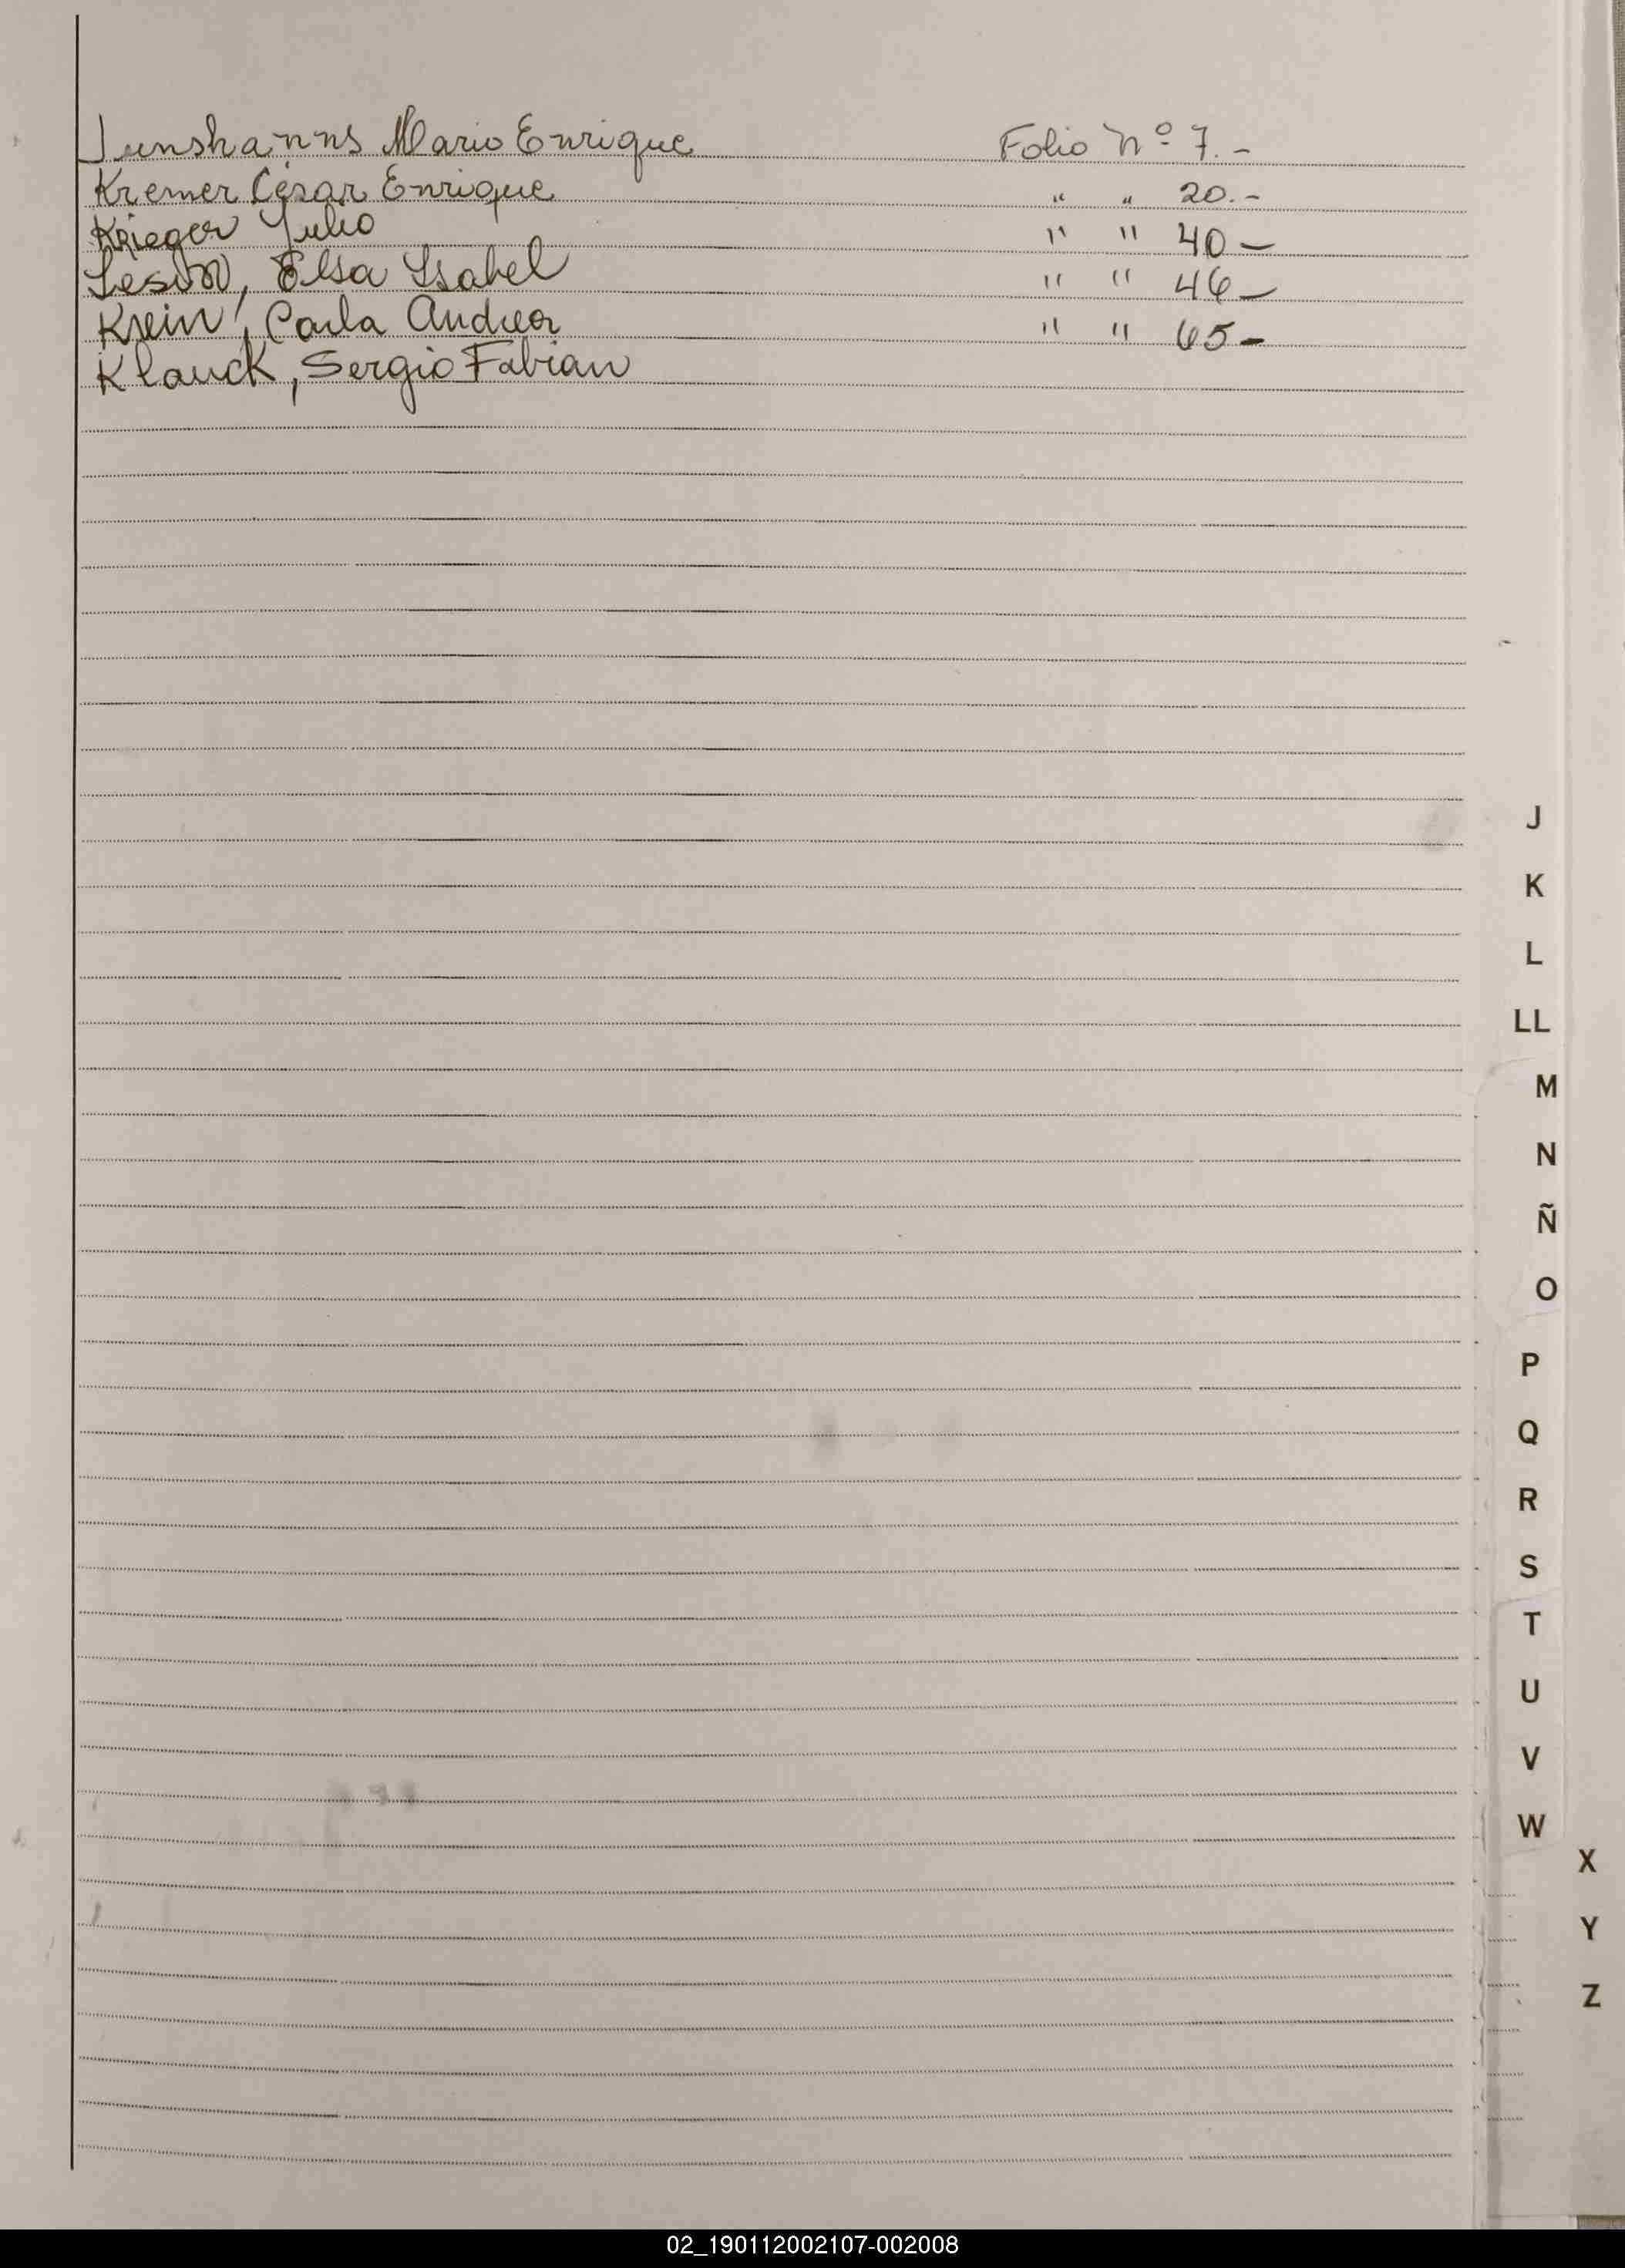 Junshanns Mario Enrique Folio Nº 7.-
Kremer César Enrique " " 20.-
Krieger Julio " " 40-
Elsa Isabel " " 46-
Krein, Carla Andrea " " 65-
Klauck, Sergio Fabian
J
K
L
LL
M
N
Ñ
O
P
Q
R
S
T
U
V
W
X
Y
Z
02_190112002107-002008